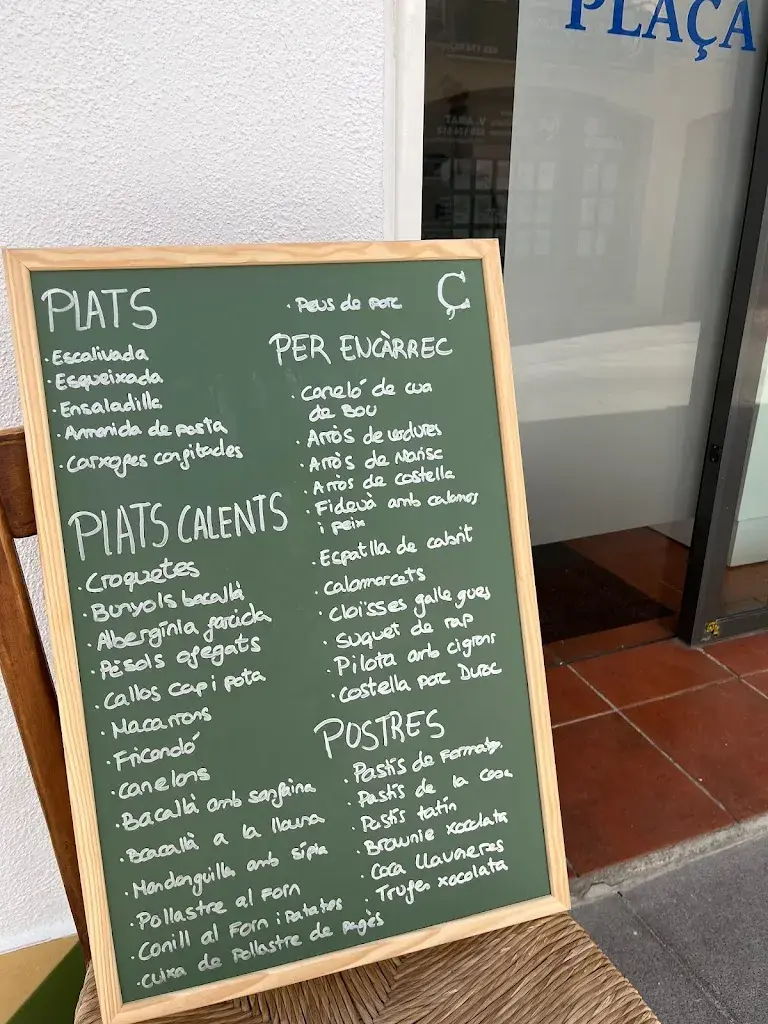 PLAÇA
Ç
PLATS
· Escalivada
· Esqueixada
· Ensaladilla
· Amanida de pasta
· Carxofes confitades
PLATS CALENTS
· Croquetes
· Bunyols bacallà
· Albergínia farcida
· Pèsols ofegats
· Callos cap i pota
· Macarrons
· Fricandó
· Canelons
· Bacallà amb sanfaina
· Bacallà a la llauna
· Mandonguilla amb sípia
· Pollastre al Forn
· Conill al Forn i Patates
· Cuixa de Pollastre de pagès
· Peus de porc
PER ENCÀRREC
· Caneló de cua
de Bou
· Arròs de verdures
· Arròs de Marisc
· Arròs de costella
· Fideuà amb calamars
i peix
· Espatlla de cabrit
· Calamarcets
· Cloïsses gallegues
· Suquet de rap
· Pilota amb cigrons
· Costella porc Duroc
POSTRES
· Pastís de Formatge
· Pastís de la casa
· Pastís tatin
· Brownie xocolata
· Coca llavaneres
· Trufes xocolata